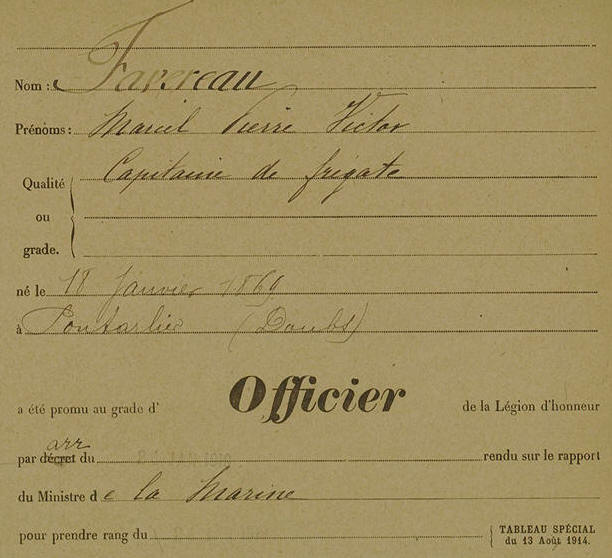 Nom : Favereau
Prénoms : Marcel Pierre Victor
Qualité ou grade. Capitaine de frégate
né le 18 Janvier 1869
à Pontarlier (Doubs)
a été promu au grade d' Officier de la Légion d'honneur
arr
par décret du rendu sur le rapport
du Ministre de la Marine
pour prendre rang du TABLEAU SPÉCIAL
du 13 Août 1914.